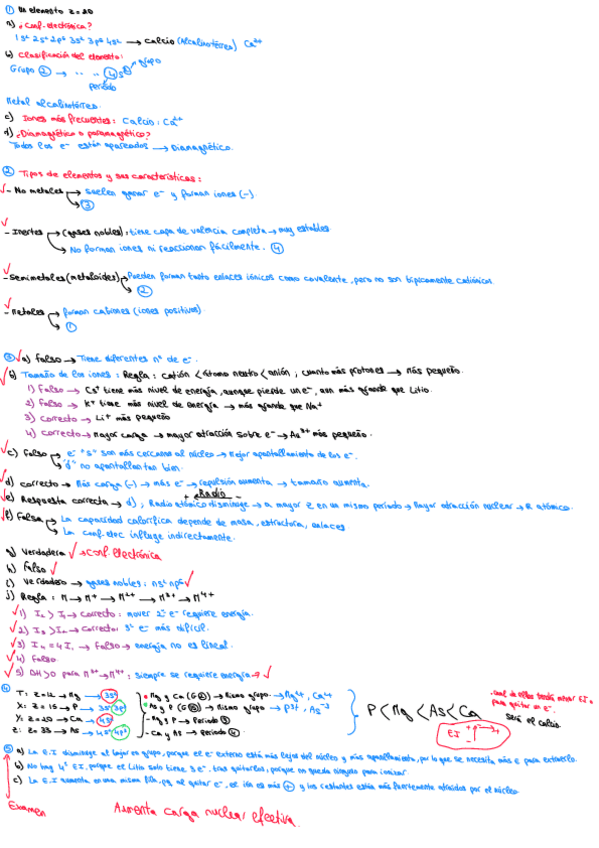 ① Un elemento z = 20
a) ¿Conf. electrónica?
1s² 2s² 2p⁶ 3s² 3p⁶ 4s² → calcio (Alcalinotérreo) Ca²⁺
b) Clasificación del elemento:
Grupo ② → ·· ·· ④s² grupo
período
Metal alcalinotérreo.
c) Iones más frecuentes: calcio: Ca²⁺
d) ¿Diamagnético o paramagnético?
Todos los e⁻ están apareados → Diamagnético.
② Tipos de elementos y sus características:
✓ - No metales → suelen ganar e⁻ y forman iones (-)
→ ③
✓ - Inertes → (gases nobles), tiene capa de valencia completa → muy estables
→ No forman iones ni reaccionan fácilmente. ④
✓ - Semimetales (metaloides) → Pueden forman tanto enlaces iónicos como covalente, pero no son típicamente
→ ②
✓ - Metales → forman cationes (iones positivos)
→ ①
③ ✓ a) Falso → Tiene diferentes nº de e⁻.
✓ b) Tamaño de los iones: Regla: catión < átomo neutro < anión; cuanto más protones → más pequeño.
1) Falso → Cs⁺ tiene más nivel de energía, aunque pierde un e⁻, aun más grande que Litio.
2) Falso → K⁺ tiene más nivel de energía → más grande que Na⁺
3) correcto → Li⁺ más pequeño
4) correcto → mayor carga → mayor atracción sobre e⁻ → más pequeño.
✓ c) Falso → e⁻ "s" son más cercano al núcleo → Mejor apantallamiento de los e⁻.
→ "d" no apantallan bien.
✓ d) correcto → Más carga (-) → más e⁻ → repulsión aumenta → tamaño aumenta.
+ Radio -
✓ e) Respuesta correcta → d); Radio atómico disminuye → a mayor z en un mismo período → Mayor atracción nuclear → R atómico
✓ f) Falsa → La capacidad calorífica depende de masa, estructura, enlaces
→ La conf. elec influye indirectamente.
g) Verdadera ✓ → conf. electrónica
h) Falso ✓
i) Verdadero → gases nobles: ns² np⁶ ✓
j) Regla: M → M⁺ → M²⁺ → M³⁺ → M⁴⁺
✓ 1) I₂ > I₁ → correcto: mover 2º e⁻ requiere energía.
✓ 2) I₃ > I₂ → correcto: 3º e⁻ más difícil.
✓ 3) I₄ = 4I₁ → Falso → energía no es lineal.
✓ 4) Falso
✓ 5) ΔH>0 para M³⁺ → M⁴⁺: siempre se requiere energía → ✓
④ T: z=12 → Mg → 3s²
X: z=15 → P → 3s² 3p³
Y: z=20 → Ca → 4s²
Z: z=33 → As → 4s² 4p³
• Mg y Ca (G②) → Mismo grupo → Mg²⁺, Ca²⁺
• As y P (G⑮) → Mismo grupo → P³⁻, As⁻³
- Mg y P → Periodo ③
- Ca y As → Periodo ④
P < Mg < As < Ca
cual de ellos tendrá menor E.I.
para quitar un e⁻.
será el calcio.
EI ↑ → +
⑤ a) La E.I disminuye al bajar en grupo, porque el e⁻ externo está más lejos del núcleo y más apantallamiento, por lo que se necesita más E para extraerlo.
b) No hay 4ª EI, porque el Litio solo tiene 3 e⁻, tras quitarlos, porque no queda ninguno para ionizar.
c) La E.I aumenta en una misma fila, pq al quitar e⁻, el ión es más ⊕ y los restantes están más fuertemente atraídos por el núcleo.
Examen
Aumenta carga nuclear efectiva.